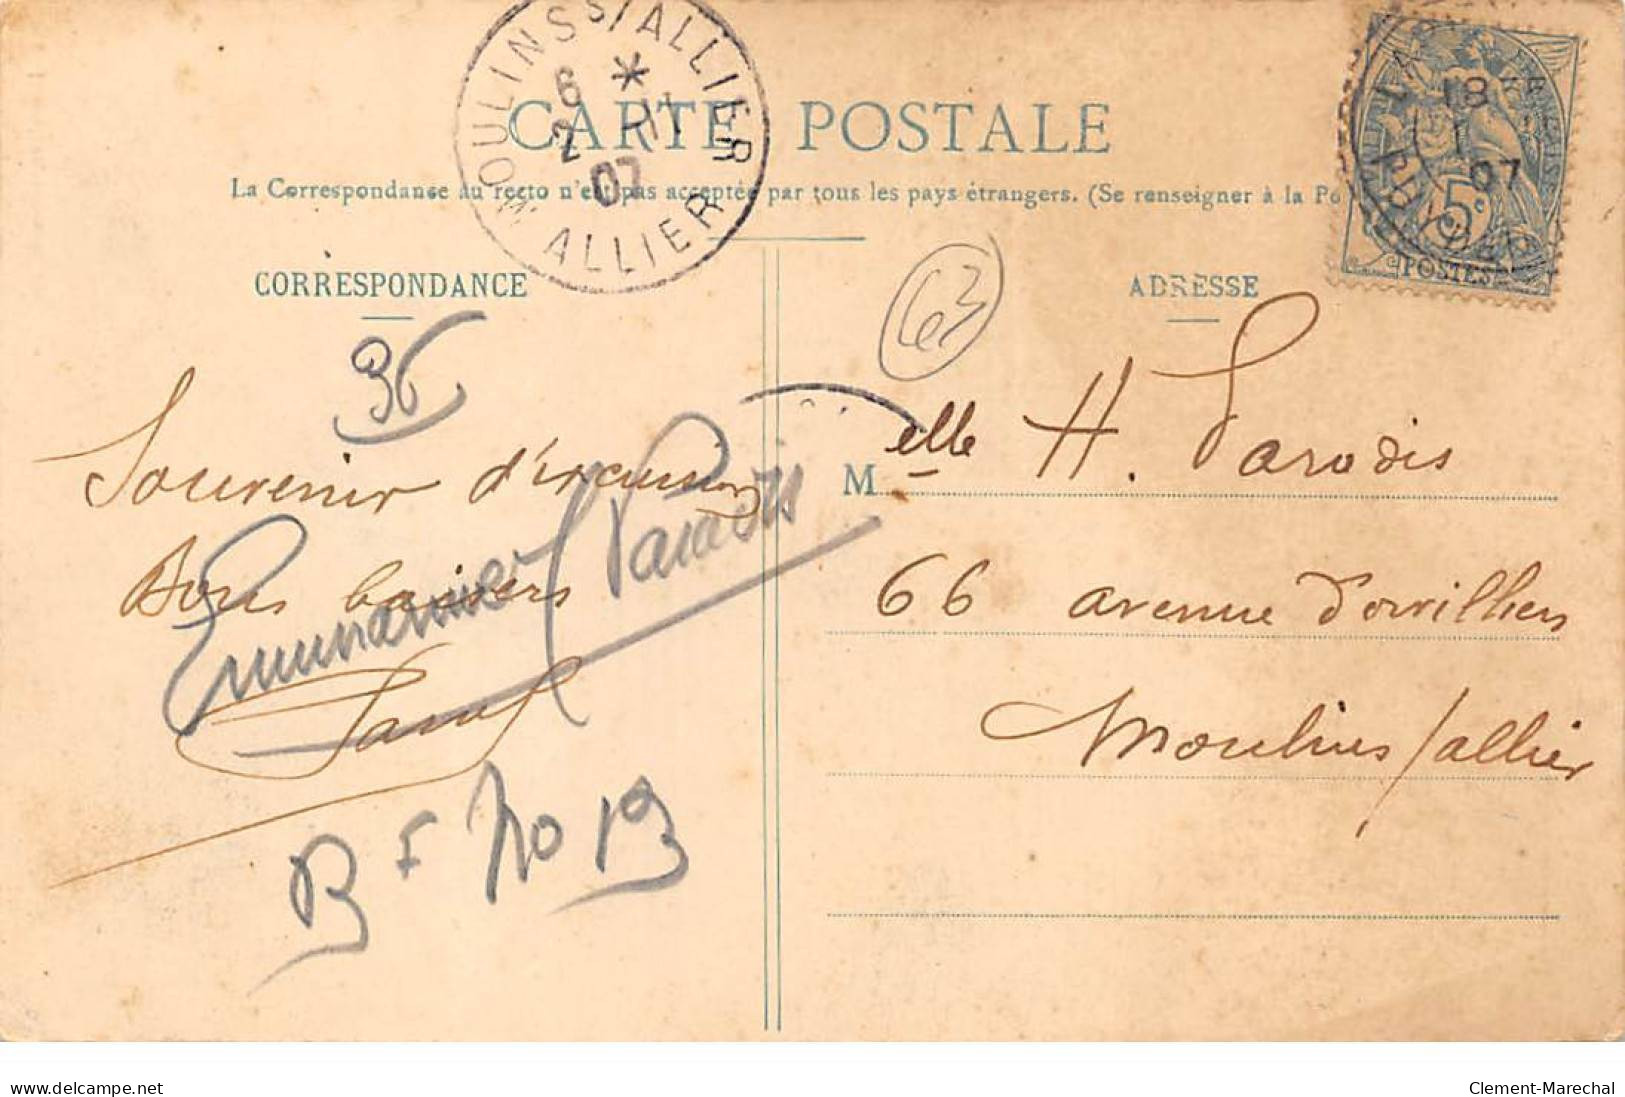 MOULINS S/ALLIER
6 *
2 -11
07
ALLIER
CARTE POSTALE
18
07
5c
POSTES
La Correspondance au recto n'est pas acceptée par tous les pays étrangers. (Se renseigner à la Po
CORRESPONDANCE
ADRESSE
63
36
Souvenir d'excursion
Bons baisers
Parodis
Melle H. Parodis
66 avenue d'orvilliers
Moulins s/allier
no 13
delcampe.net
Clement-Marechal